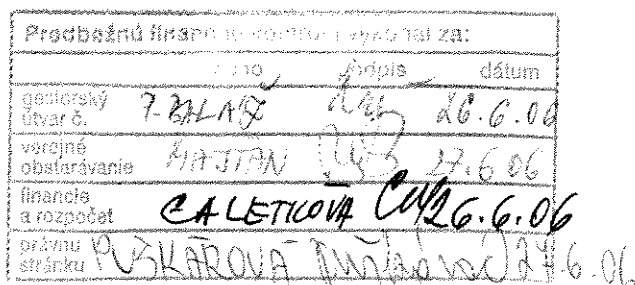 Predbežnú finančnú kontrolu vykonal za:
meno podpis dátum
gestorský útvar č. 7-BALAŽ 26.6.06
verejné obstarávanie MAJTÁN 27.6 06
financie a rozpočet CALETKOVÁ 26.6.06
právnu stránku PUŠKÁROVÁ 27.6.06